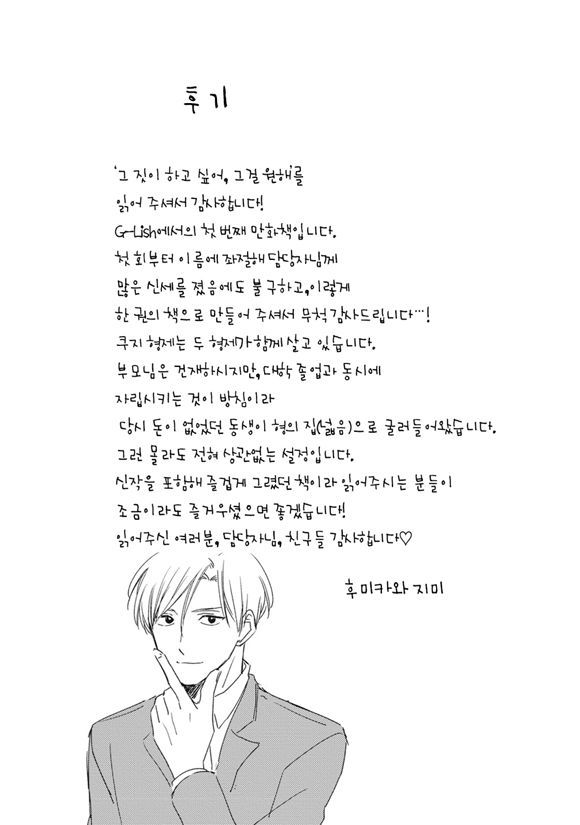 후기
'그 짓이 하고 싶어, 그걸 원해'를
읽어 주셔서 감사합니다!
G-Lish에서의 첫 번째 만화책입니다.
첫 회부터 이름에 좌절해 담당자님께
많은 신세를 졌음에도 불구하고,이렇게
한 권의 책으로 만들어 주셔서 무척 감사드립니다…!
쿠지 형제는 두 형제가 함께 살고 있습니다.
부모님은 건재하시지만, 대학 졸업과 동시에
자립시키는 것이 방침이라
당시 돈이 없었던 동생이 형의 집(넓음)으로 굴러들어왔습니다.
그런 몰라도 전혀 상관없는 설정입니다.
신작을 포함해 즐겁게 그렸던 책이라 읽어주시는 분들이
조금이라도 즐거우셨으면 좋겠습니다!
읽어주신 여러분, 담당자님, 친구들 감사합니다♡
후미카와 지미